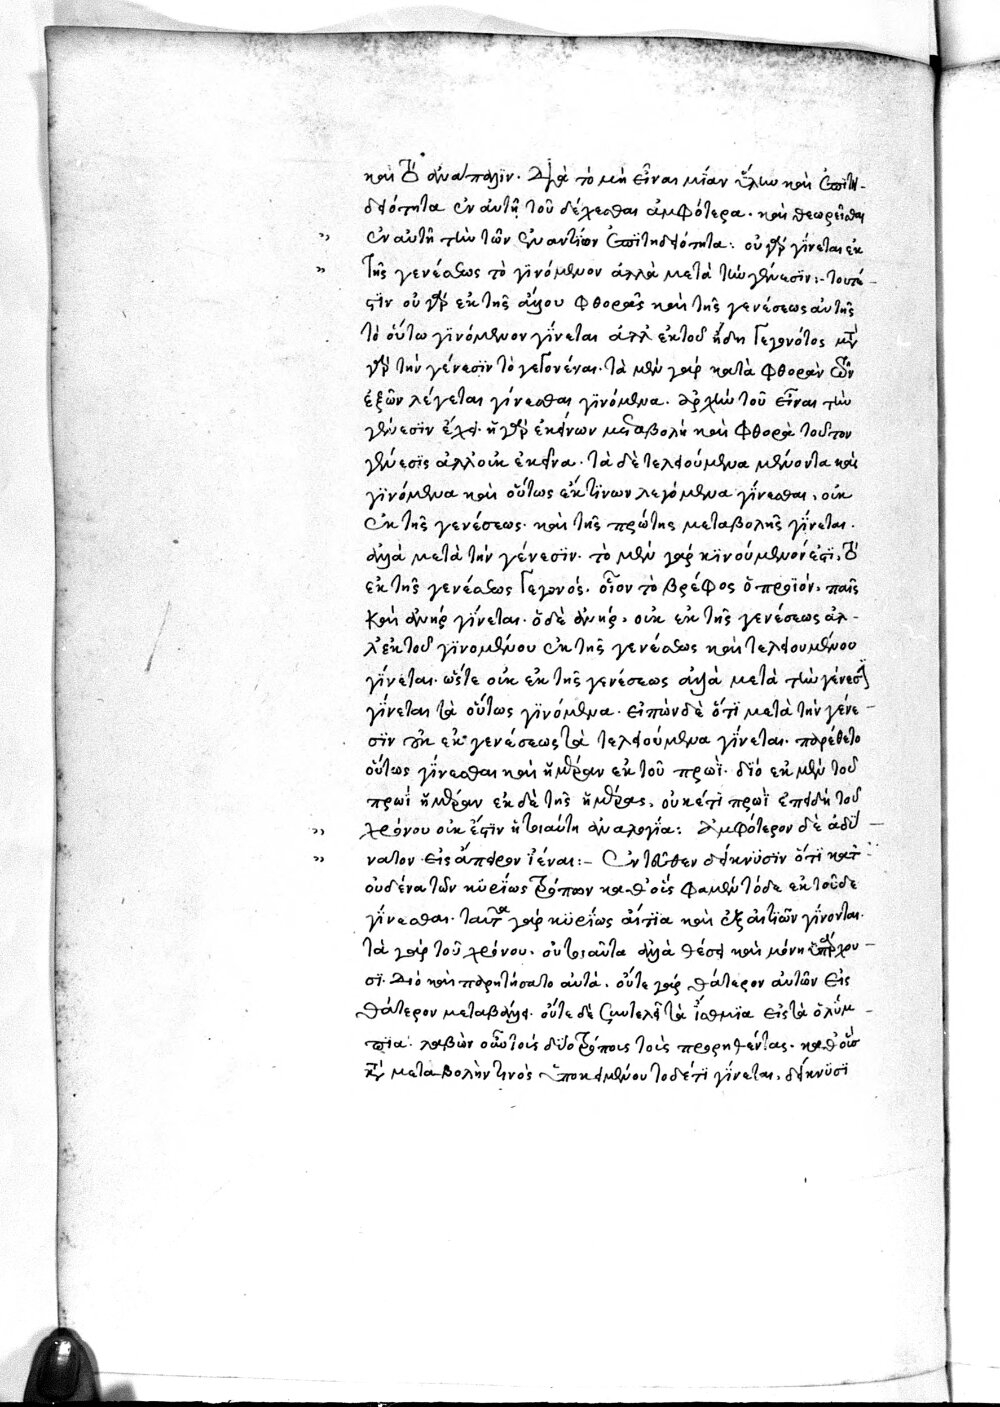 καὶ τὸ ἀνάπαλϊν. διὰ τὸ μὴ εἶναι μΐαν ὕλην καὶ ἐπϊτη-
δειότητα ἐν αὐτῆ τοῦ δέχεσθαι ἀμφότερα. καὶ θεωρεῖσθαι
ἐν αὐτῆ τὴν τῶν ἐναντίων ἐπϊτηδειότητα: οὐ γὰρ γΐνεται ἐκ
τῆς γενέσεως τὸ γϊνόμενον ἀλλὰ μετὰ τὴν γένεσϊν:- τουτέ-
στϊν οὐ γὰρ ἐκ τῆς ἄλλου φθορᾶς καὶ τῆς γενέσεως αὐτῆς
τὸ οὕτω γϊνόμενον γΐνεται ἀλλ' ἐκ τοῦ ἤδη γεγονότος μετὰ
γὰρ τὴν γένεσϊν τὸ γεγονέναι. τὰ μὲν γὰρ κατὰ φθορὰν ὧν
ἐξ ὧν λέγεται γίνεσθαι γϊνόμενα. ἀρχὴν τοῦ εἶναι τὴν
γένεσϊν ἔχει. ἡ γὰρ ἐκείνων μεταβολὴ καὶ φθορὰ τούτων
γένεσϊς ἀλλ' οὐκ ἐκεῖνα. τὰ δὲ τελειούμενα μένοντα καὶ
γϊνόμενα καὶ οὕτως ἔκ τϊνων λεγόμενα γΐνεσθαι, οὐκ
ἐκ τῆς γενέσεως. καὶ τῆς πρώτης μεταβολῆς γΐνεται.
ἀλλὰ μετὰ τὴν γένεσϊν. τὸ μὲν γὰρ κϊνούμενόν ἐστϊ, τὸ
ἐκ τῆς γενέσεως γεγονός. οἷον τὸ βρέφος ὃ προϊὸν, παῖς
καὶ ἀνὴρ γΐνεται. ὁ δὲ ἀνὴρ, οὐκ ἐκ τῆς γενέσεως ἀλ-
λ' ἐκ τοῦ γϊνομένου ἐκ τῆς γενέσεως καὶ τελειουμένου
γΐνεται. ὥστε οὐκ ἐκ τῆς γενέσεως ἀλλὰ μετὰ τὴν γένεσϊν
γΐνεται τὰ οὕτως γϊνόμενα. εἰπὼν δὲ ὅτϊ μετὰ τὴν γένε-
σϊν οὐκ ἐκ γενέσεως τὰ τελειούμενα γΐνεται. παρέθετο
οὕτως γΐνεσθαι καὶ ἡμέραν ἐκ τοῦ πρωΐ. διὸ ἐκ μὲν τοῦ
πρωῒ ἡμέραν ἐκ δὲ τῆς ἡμέρας, οὐκέτϊ πρωῒ ἐπειδὴ τοῦ
χρόνου οὐκ ἔστϊν ἡ τοιαύτη ἀναλογΐα: ἀμφότερον δὲ ἀδύ-
νατον εἰς ἄπειρον ϊέναι:- ἐντεῦθεν δείκνϋσϊν ὅτϊ κατ'
οὐδένα τῶν κϋρΐως τρόπων καθ' οὕς φαμὲν τόδε ἐκ τοῦδε
γΐνεσθαι. ταῦτα γὰρ κϋρΐως αἴτϊα καὶ ἐξ αἰτϊῶν γΐνονται.
τὰ γὰρ τοῦ χρόνου. οὐ τοιαῦτα ἀλλὰ θέσει καὶ μόνη ὑπάρχου-
σϊ. διὸ καὶ παρητήσατο αὐτὰ. οὔτε γὰρ θάτερον αὐτῶν εἰς
θάτερον μεταβάλλει. οὔτε δὲ συντελεῖ τὰ ἴσθμϊα εἰς τὰ ὀλύμ-
πϊα. λαβὼν οὖν τοὺς δύο τρόπους τοὺς προρηθέντας. καθ' οὓς
κατὰ μεταβολὴν τινὸς ὑποκειμένου τόδε τϊ γΐνεται, δείκνϋσϊ